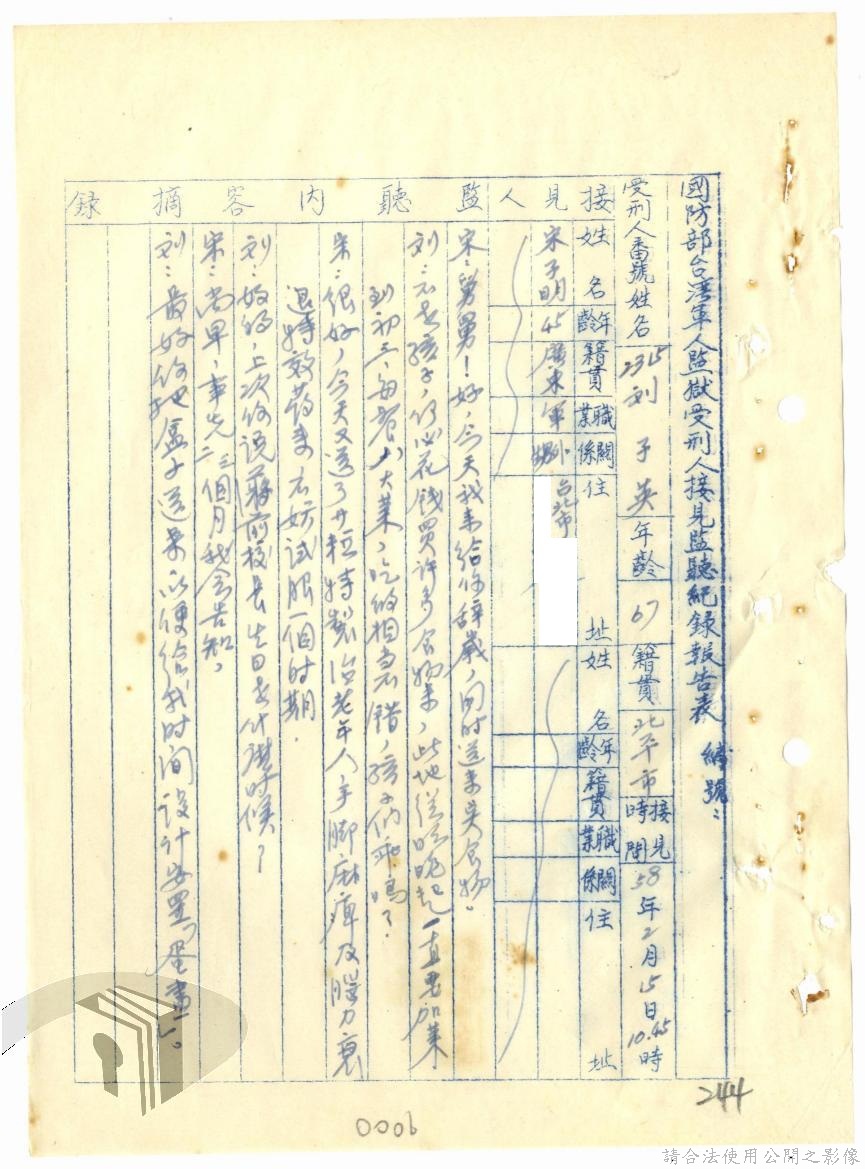 國防部台灣軍人監獄受刑人接見監聽紀錄報告表 編號:
受刑人番號姓名 2315 刘子英 年齡 67 籍貫 北平市 接見時間 58年2月15日10.45時
接見人 姓名 年齡 籍貫 職業 關係 住址 姓名 年齡 籍貫 職業 關係 住址
宋子明 45 廣東 軍 甥外 台北市
監聽內容摘錄
宋:舅舅!好,今天我来給你辞歲,同时送来些食物。
刘:不是孩子,何必花钱買许多食物来,此地從昨晚起一直要加菜
到初三,每餐六大菜,吃的相当不错,孩子们乖嗎?
宋:很好,今天又送了廿粒特製治老年人手脚麻痺及腦力衰
退特效葯来,不妨试服一個时期.
刘:好的,上次你说蔣前校长生日是什麽时候?
宋:尚早,事先二三個月我会告知。
刘:最好你把盒子送来以便给我时间设计安置「蛋畫」。
244
0006
請合法使用公開之影像